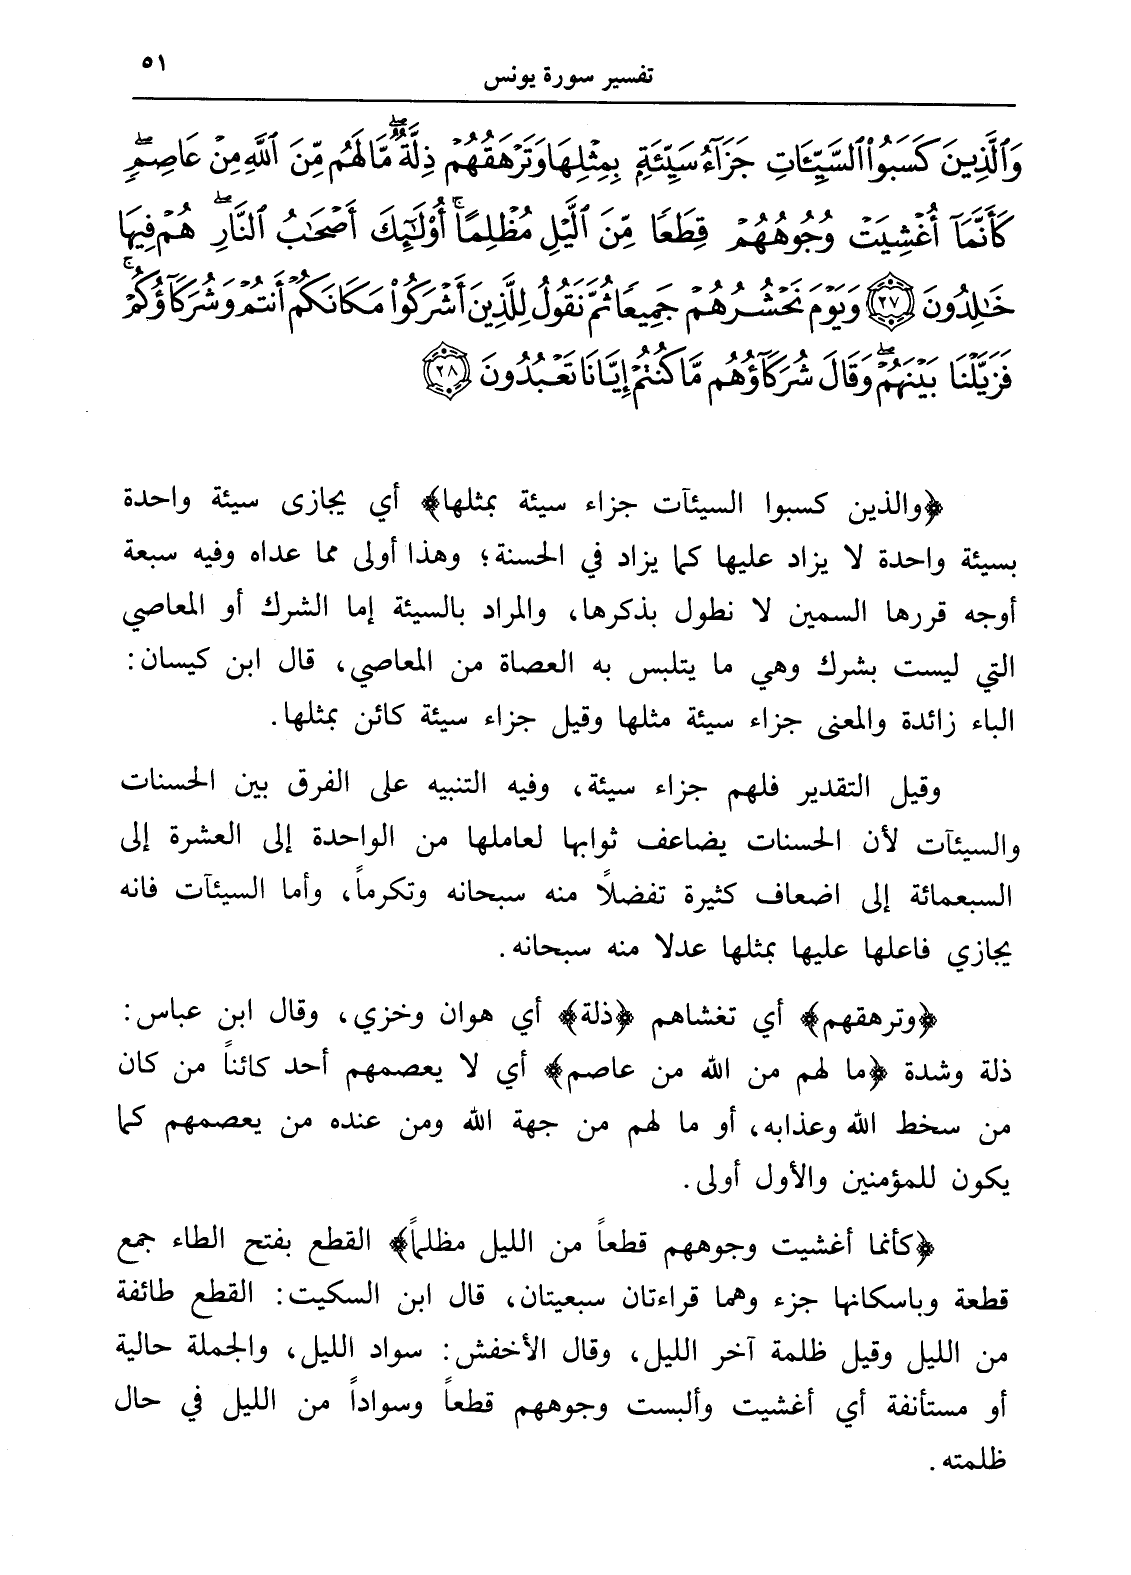 تفسير سورة يونس
٥١
وَٱلَّذِينَ كَسَبُوا۟ ٱلسَّيِّـَٔاتِ جَزَآءُ سَيِّئَةٍۭ بِمِثْلِهَا وَتَرْهَقُهُمْ ذِلَّةٌ ۖ مَّا لَهُم مِّنَ ٱللَّهِ مِنْ عَاصِمٍ ۖ
كَأَنَّمَآ أُغْشِيَتْ وُجُوهُهُمْ قِطَعًا مِّنَ ٱلَّيْلِ مُظْلِمًا ۚ أُو۟لَٰٓئِكَ أَصْحَٰبُ ٱلنَّارِ ۖ هُمْ فِيهَا
خَٰلِدُونَ ﴿٢٧﴾ وَيَوْمَ نَحْشُرُهُمْ جَمِيعًا ثُمَّ نَقُولُ لِلَّذِينَ أَشْرَكُوا۟ مَكَانَكُمْ أَنتُمْ وَشُرَكَآؤُكُمْ ۚ
فَزَيَّلْنَا بَيْنَهُمْ ۖ وَقَالَ شُرَكَآؤُهُم مَّا كُنتُمْ إِيَّانَا تَعْبُدُونَ ﴿٢٨﴾
﴿والذين كسبوا السيئآت جزاء سيئة بمثلها﴾ أي يجازى سيئة واحدة
بسيئة واحدة لا يزاد عليها كما يزاد في الحسنة؛ وهذا أولى مما عداه وفيه سبعة
أوجه قررها السمين لا نطول بذكرها، والمراد بالسيئة إما الشرك أو المعاصي
التي ليست بشرك وهي ما يتلبس به العصاة من المعاصي، قال ابن كيسان:
الباء زائدة والمعنى جزاء سيئة مثلها وقيل جزاء سيئة كائن بمثلها.
وقيل التقدير فلهم جزاء سيئة، وفيه التنبيه على الفرق بين الحسنات
والسيئآت لأن الحسنات يضاعف ثوابها لعاملها من الواحدة إلى العشرة إلى
السبعمائة إلى اضعاف كثيرة تفضلاً منه سبحانه وتكرماً، وأما السيئآت فانه
يجازي فاعلها عليها بمثلها عدلا منه سبحانه.
﴿وترهقهم﴾ أي تغشاهم ﴿ذلة﴾ أي هوان وخزي، وقال ابن عباس:
ذلة وشدة ﴿ما لهم من الله من عاصم﴾ أي لا يعصمهم أحد كائناً من كان
من سخط الله وعذابه، أو ما لهم من جهة الله ومن عنده من يعصمهم كما
يكون للمؤمنين والأول أولى.
﴿كأنما أغشيت وجوههم قطعاً من الليل مظلماً﴾ القطع بفتح الطاء جمع
قطعة وباسكانها جزء وهما قراءتان سبعيتان، قال ابن السكيت: القطع طائفة
من الليل وقيل ظلمة آخر الليل، وقال الأخفش: سواد الليل، والجملة حالية
أو مستأنفة أي أغشيت وألبست وجوههم قطعاً وسواداً من الليل في حال
ظلمته.